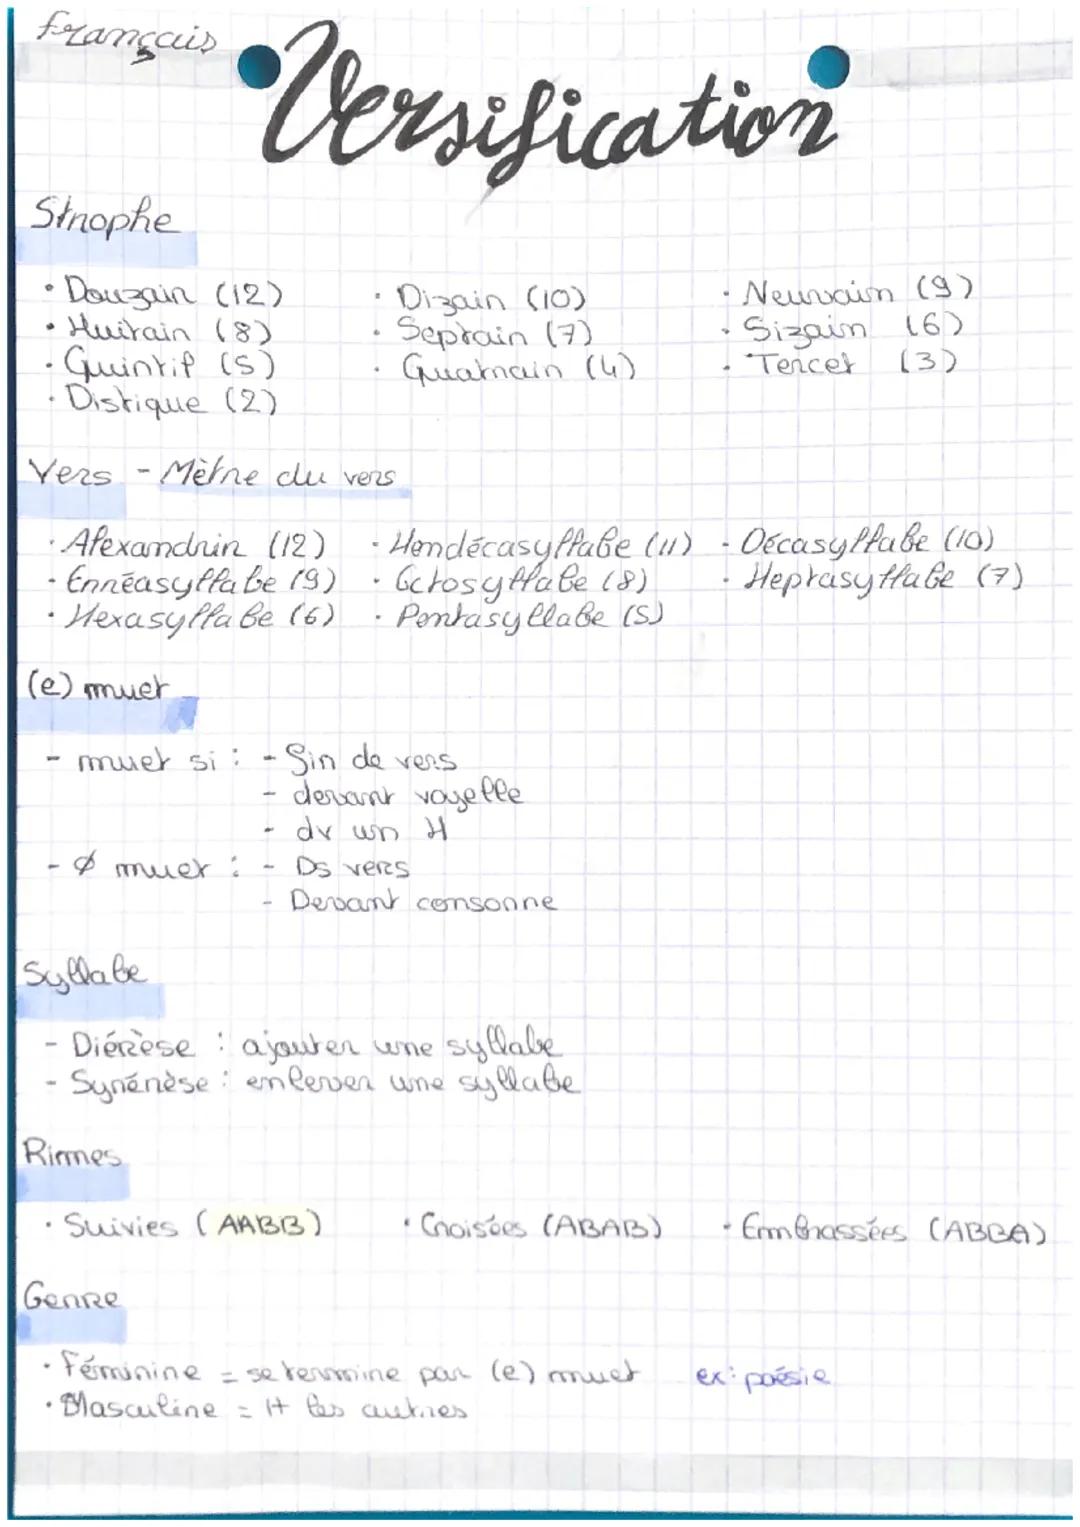 Français
Versification
Strophe
• Douzain (12) • Dizain (10) • Neuvain (9)
• Huitain (8) • Septain (7) • Sizain (6)
• Quintil (5) • Quatrain (4) • Tercet (3)
• Distique (2)
Vers - Mètre du vers
• Alexandrin (12) • Hendécasyllabe (11) - Décasyllabe (10)
• Ennéasyllabe (9) • Octosyllabe (8) • Heptasyllabe (7)
• Hexasyllabe (6) • Pentasyllabe (5)
(e) muet
- muet si : - fin de vers
- devant voyelle
- dv un H
- Ø muet : - Ds vers
- Devant consonne
Syllabe
- Diérèse : ajouter une syllabe
- Synérèse : enlever une syllabe
Rimes
• Suivies (AABB) • Croisées (ABAB) • Embrassées (ABBA)
Genre
• Féminine = se termine par (e) muet ex : poésie
• Masculine = tt les autres